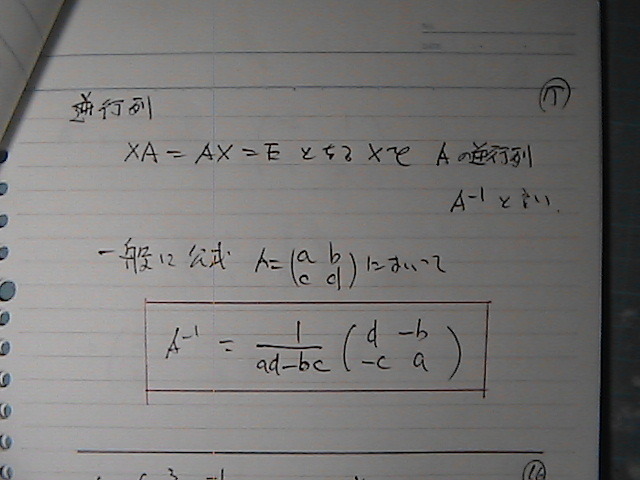 逆行列
XA = AX = E となる Xを Aの逆行列
A⁻¹ といい.
一般に 公式 A = (a b
c d) において
A⁻¹ = 1/(ad-bc) (d -b
-c a)